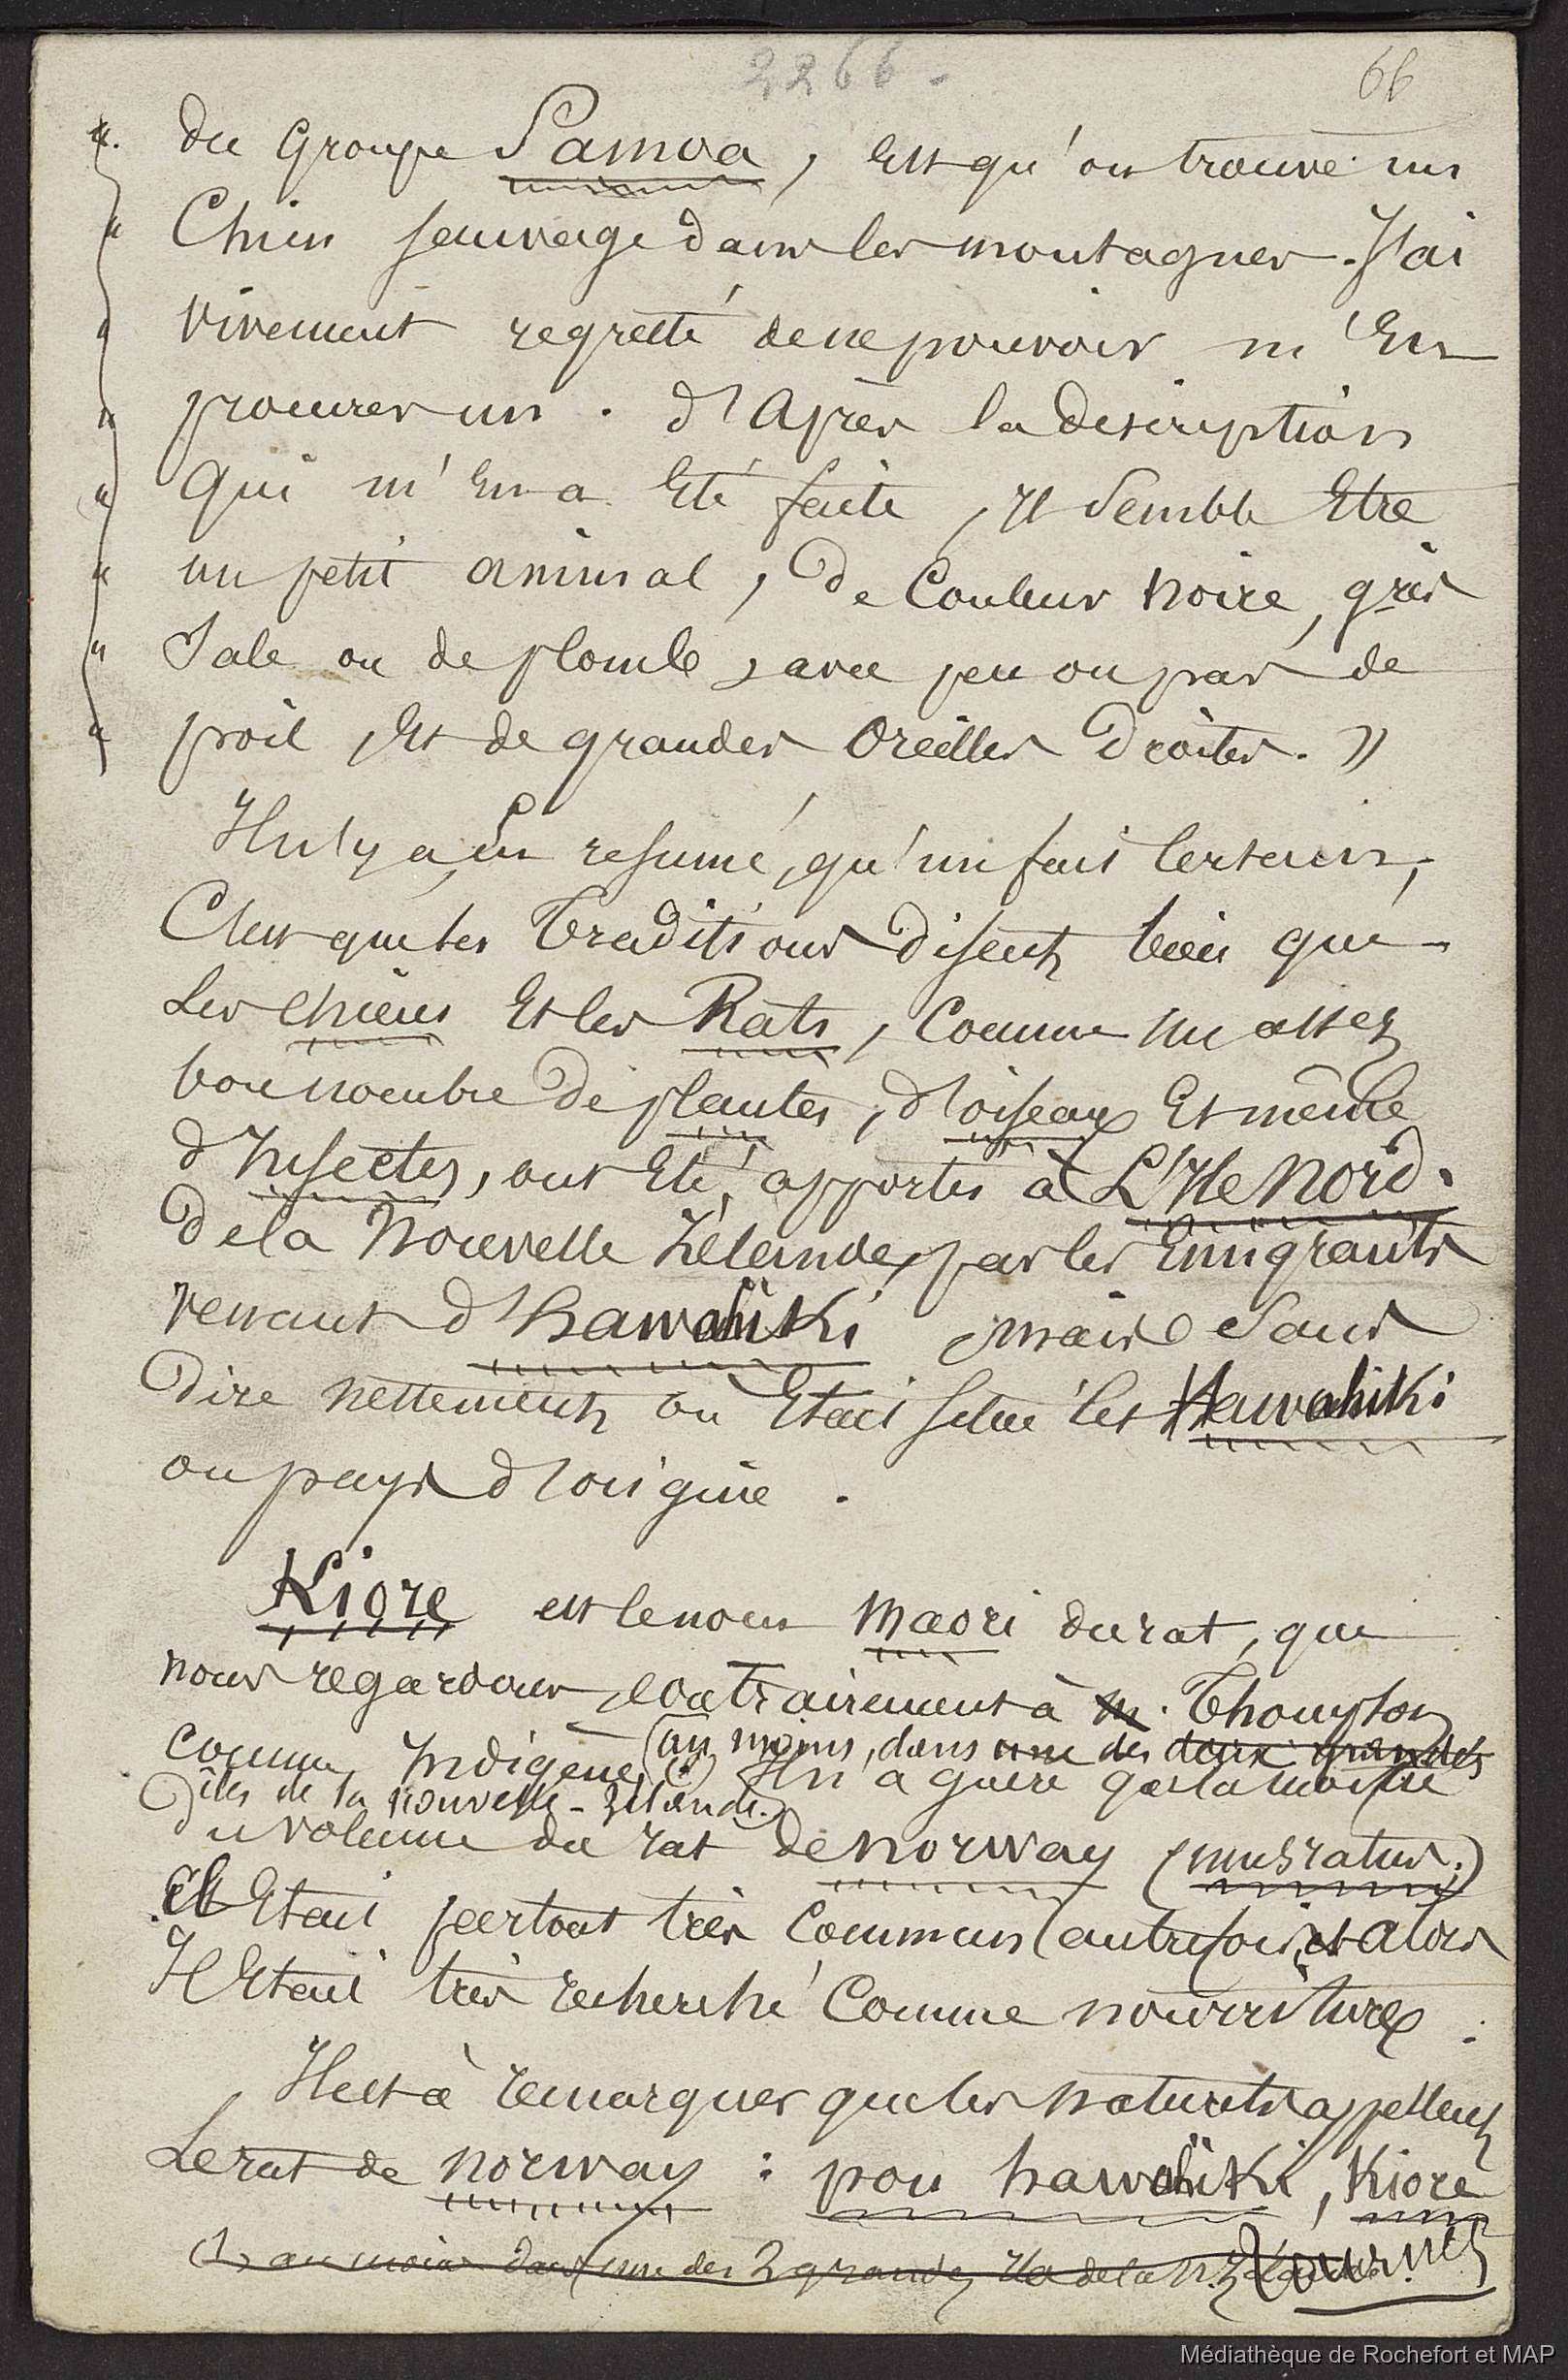 2266.
66
« du Groupe Samoa, est qu'on trouve un
« Chien sauvage dans les montagnes. J'ai
« vivement regretté de ne pouvoir m'en
« procurer un. d'Après la description
« qui m'en a Eté faite, Il Semble Etre
« un petit animal, De Couleur noire, gris
« Sale ou de plomb, avec peu ou pas de
« poil, et de grandes Oreilles Droites. »
Il n'y a, en resumé, qu'un fait Certain,
C'est que les Traditions Disent bien que
Les chiens Et les Rats, Comme un assez
bon nombre De plantes, d'oiseaux Et même
d'Insectes, ont Eté, apportés à L'Ile Nord.
De la Nouvelle Zélande, par les Emigrants
venant d'hawahiki, mais Sans
Dire nettement où Etait située les Hawahiki
ou pays d'origine.
Kiore est le nom Maori du rat, que
nous regardons, contrairement à M. Thompson
comme Indigène (au moins, dans une des deux grandes
(1) Il n'a guère que la moitié
îles de la Nouvelle-Zélande.)
Du volume du rat de norway (mus ratus.)
il Etait partout très Commun autrefois, et alors
Il Etait très recherché Comme nourriture.
Il est à remarquer que les naturels appellent
Le rat de norway : pou hawahiki, Kiore
(1) au moins dans une des 2 grandes Iles de la N. Zélande.
Tournez
Médiathèque de Rochefort et MAP